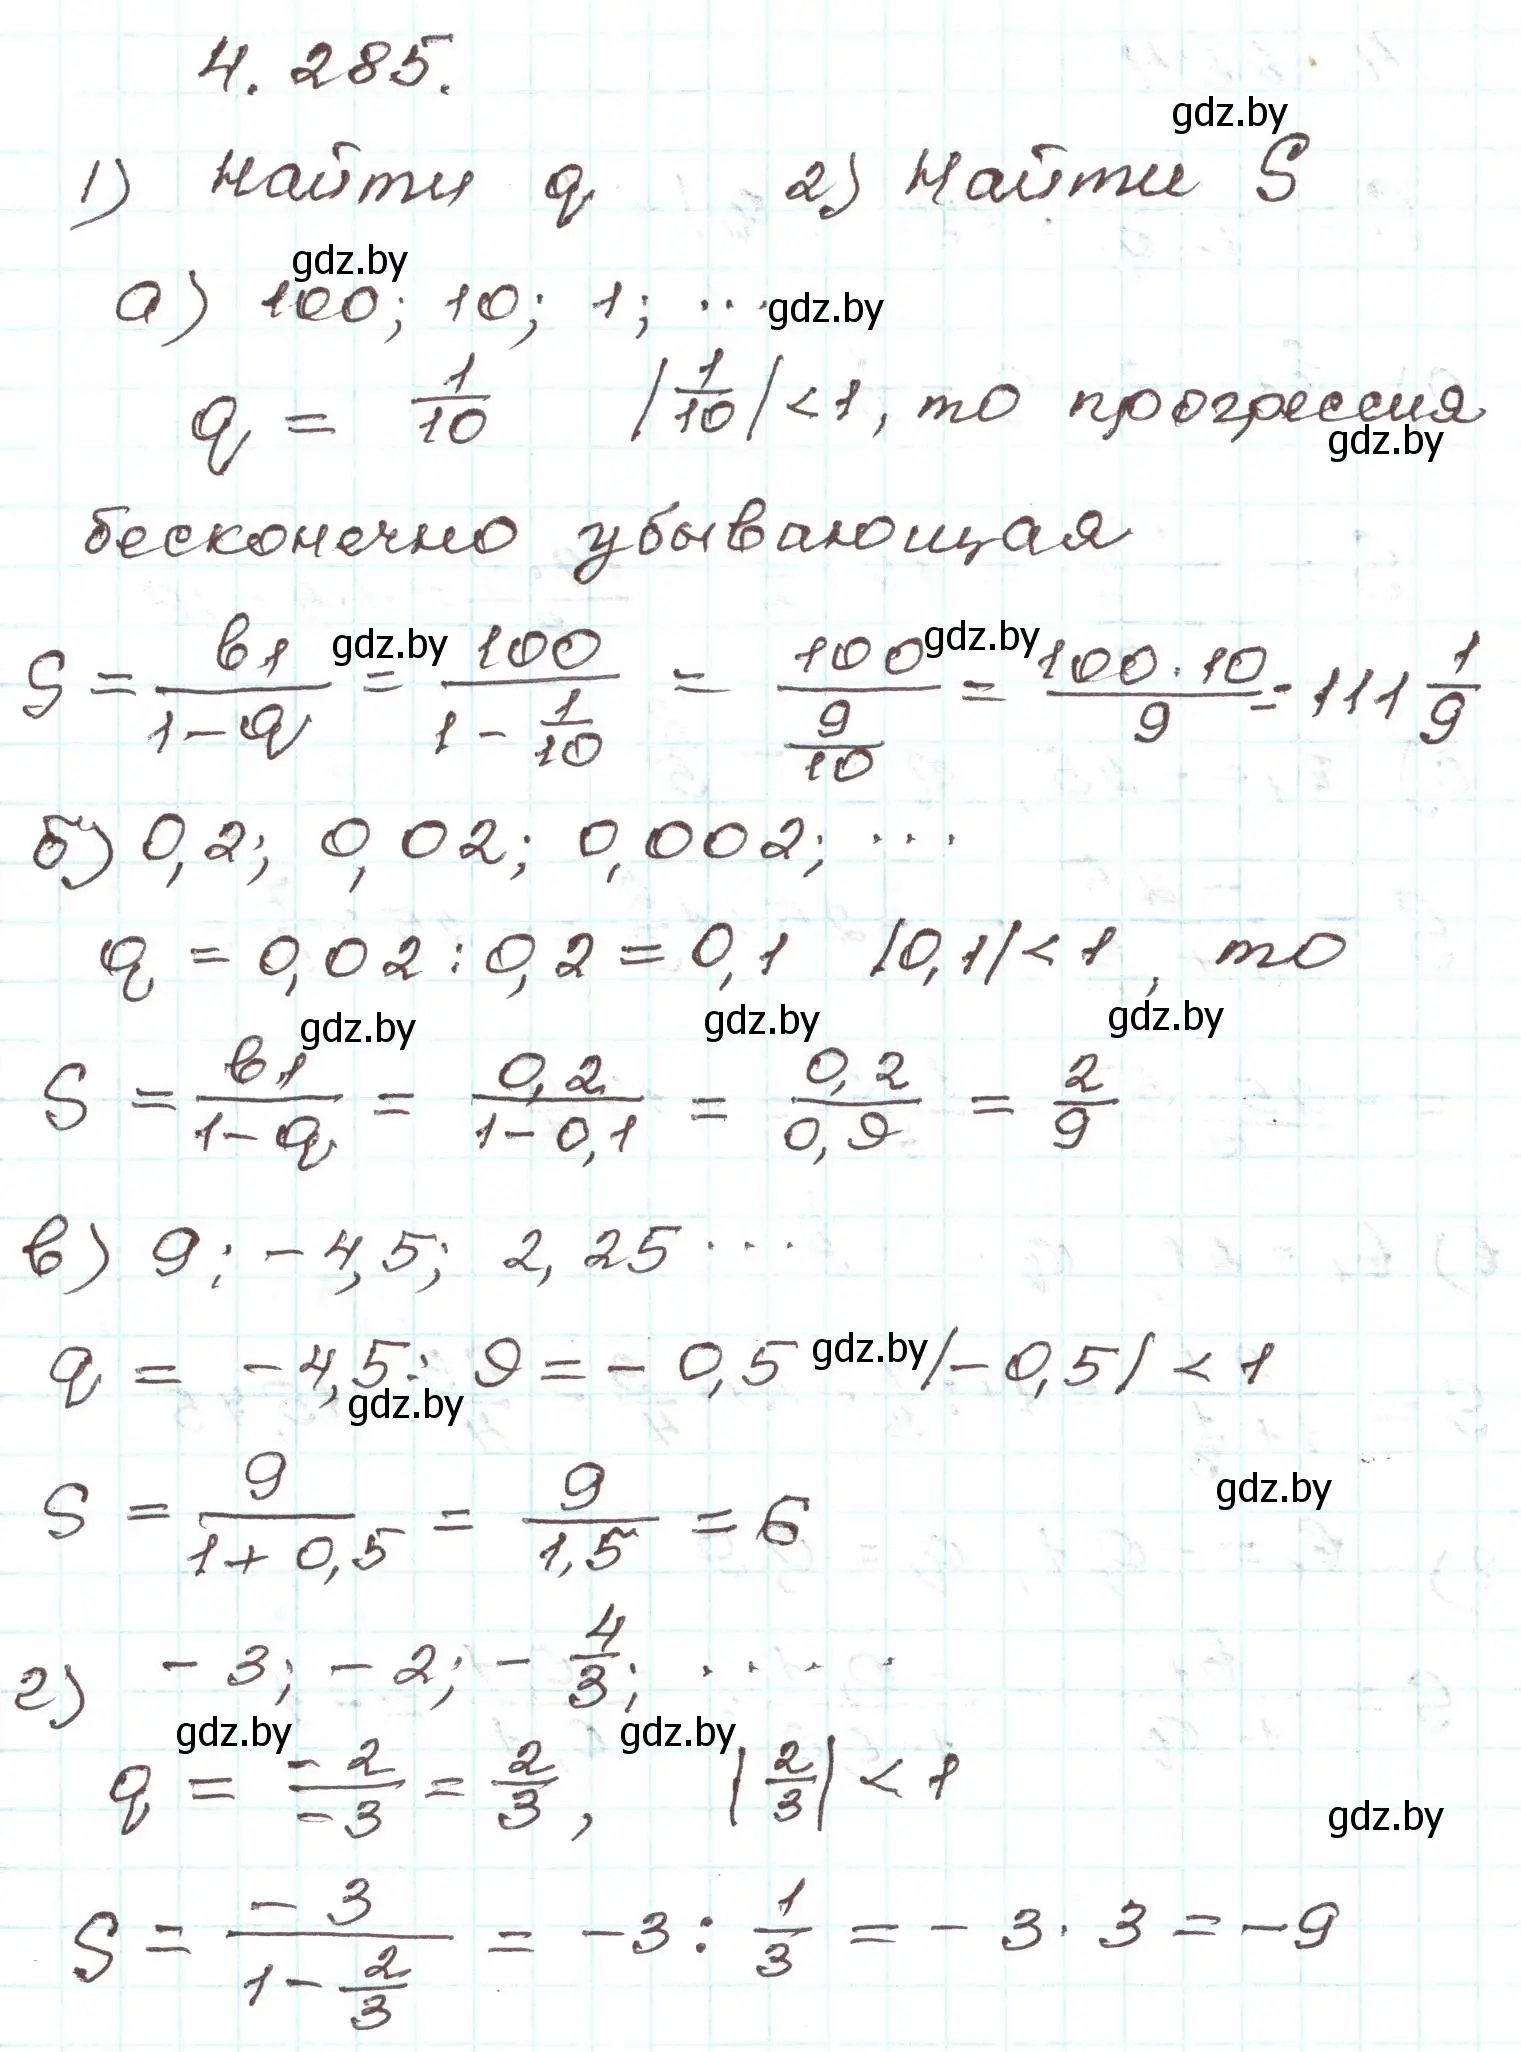 4.285.
gdz.by
1) Найти q 2) Найти S
gdz.by
а) 100; 10; 1; ... gdz.by
q = 1/10 |1/10| < 1, то прогрессия
gdz.by
бесконечно убывающая
gdz.by gdz.by
S = b1/(1-q) = 100/(1 - 1/10) = 100/(9/10) = 100·10/9 = 111 1/9
б) 0,2; 0,02; 0,002; ...
q = 0,02 : 0,2 = 0,1 |0,1| < 1, то
gdz.by gdz.by gdz.by
S = b1/(1-q) = 0,2/(1-0,1) = 0,2/0,9 = 2/9
в) 9; -4,5; 2,25 ...
q = -4,5 : 9 = -0,5 gdz.by |-0,5| < 1
gdz.by
gdz.by
S = 9/(1+0,5) = 9/1,5 = 6
г) -3; -2; -4/3; .....
gdz.by gdz.by
q = -2/-3 = 2/3, |2/3| < 1
gdz.by
S = -3/(1 - 2/3) = -3 : 1/3 = -3·3 = -9